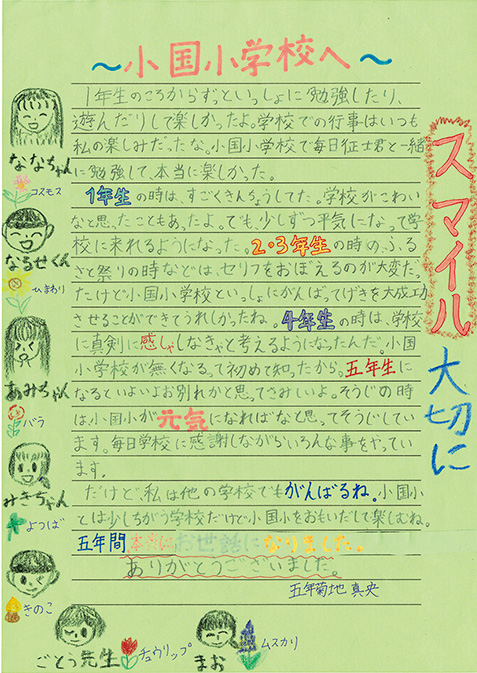 ～小国小学校へ～
1年生のころからずっといっしょに勉強したり、
遊んだりして楽しかったよ。学校での行事はいつも
私の楽しみだったな。小国小学校で毎日征士君と一緒
に勉強して、本当に楽しかった。
1年生の時は、すごくきんちょうしてた。学校がこわい
なと思ったこともあったよ。でも、少しずつ平気になって学
校に来れるようになった。2・3年生の時の、ふる
さと祭りの時などは、セリフをおぼえるのが大変だっ
たけど小国小学校といっしょにがんばってげきを大成功
させることができてうれしかったね。4年生の時は、学校
に真剣に感しゃしなきゃと考えるようになったんだ。小国
小学校が無くなるって初めて知ったから。五年生に
なるといよいよお別れかと思ってさみしいよ。そうじの時
は、小国小が元気になればなと思ってそうじしてい
ます。毎日学校に感謝しながらいろんな事をやってい
ます。
だけど、私は他の学校でもがんばるね。小国小
とは少しちがう学校だけど小国小をおもいだして楽しむね。
五年間本当にお世話になりました。
ありがとうございました。
五年菊地 真央
スマイル
大切に
ななちゃん
コスモス
なるせくん
ひまわり
あみちゃん
バラ
みきちゃん
よつば
きのこ
ごとう先生
チュウリップ
まお
ムスカリ